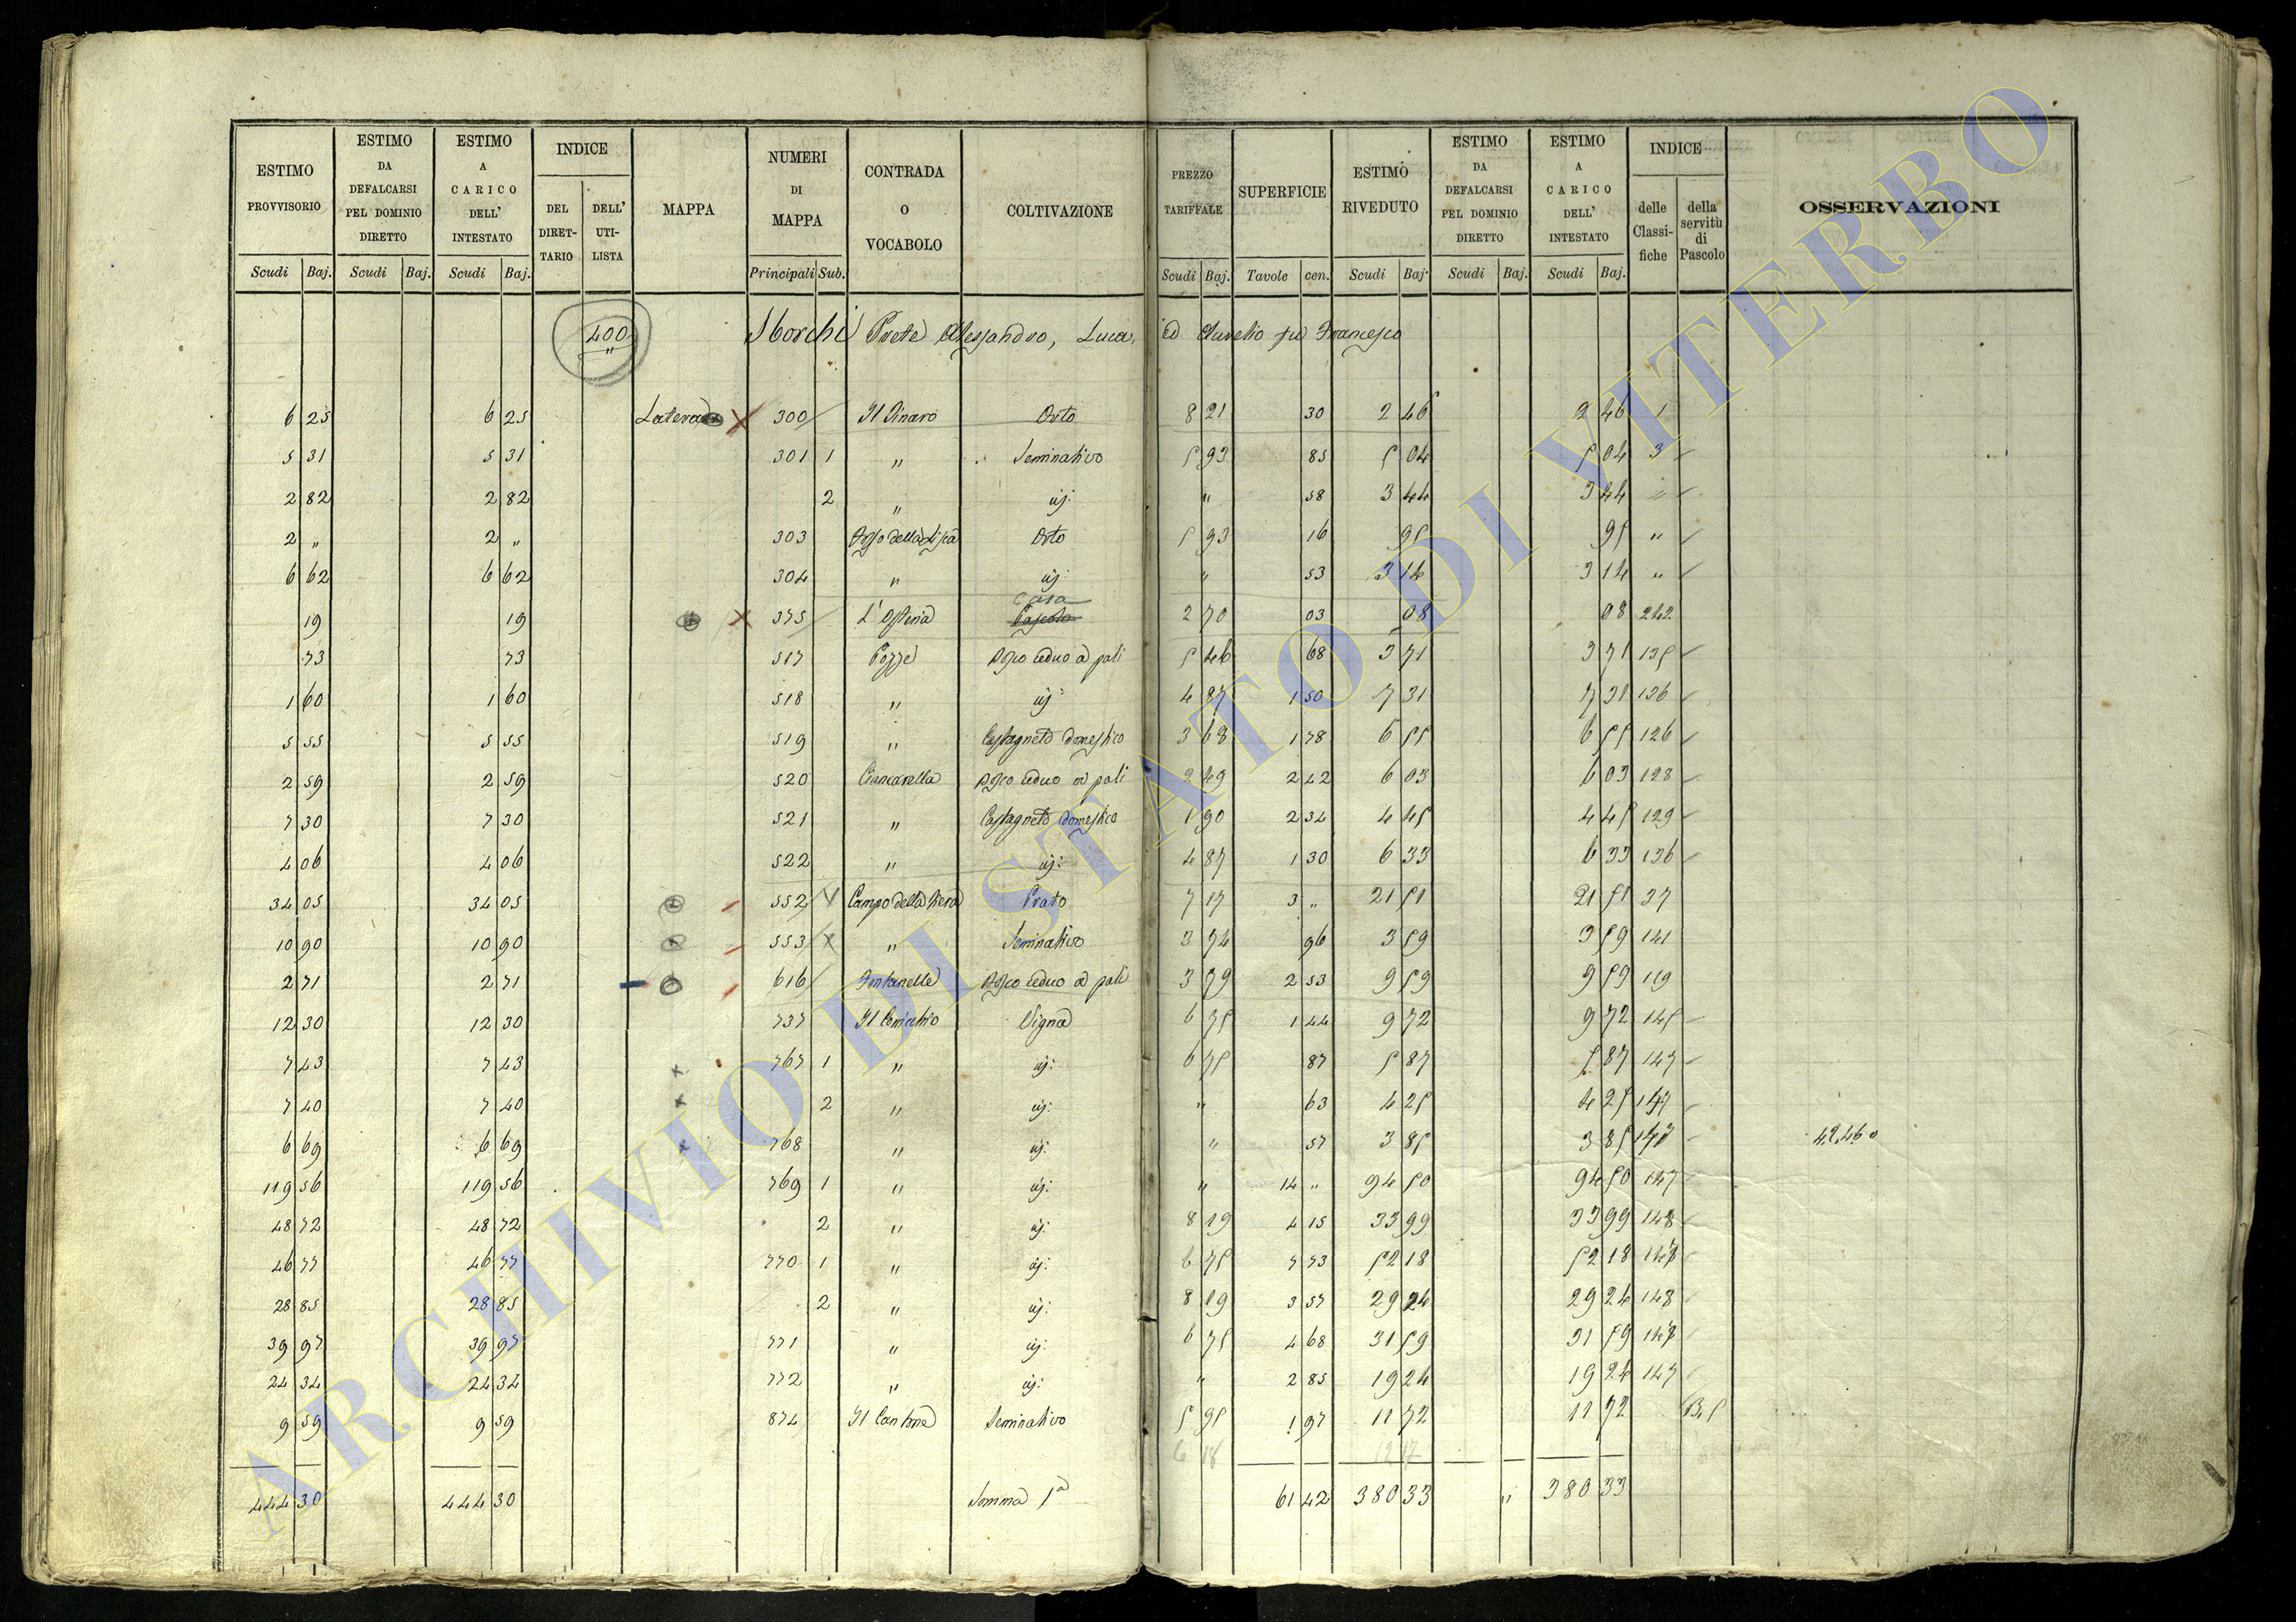 ESTIMO PROVVISORIO | ESTIMO DA DEFALCARSI PEL DOMINIO DIRETTO | ESTIMO A CARICO DELL' INTESTATO | INDICE DEL DIRETTARIO | DELL' UTILISTA | MAPPA | NUMERI DI MAPPA | CONTRADA O VOCABOLO | COLTIVAZIONE | PREZZO TARIFFALE | SUPERFICIE | ESTIMO RIVEDUTO | ESTIMO DA DEFALCARSI PEL DOMINIO DIRETTO | ESTIMO A CARICO DELL' INTESTATO | INDICE delle Classifiche | della servitù di Pascolo | OSSERVAZIONI
Scudi Baj. | Scudi Baj. | Scudi Baj. | Principali Sub. | Scudi Baj. | Tavole cen. | Scudi Baj. | Scudi Baj. | Scudi Baj.
400 Storchi Prete Alessandro, Luca, ed Aurelio fu Francesco
6 25 | 6 25 | Latera | 300 | Il Pinaro | Orto | 8 21 | 30 | 2 46 | 2 46 | 1
5 31 | 5 31 | 301 1 | " | Seminativo | 5 93 | 85 | 5 04 | 5 04 | 3
2 82 | 2 82 | 2 | " | id: | " | 58 | 3 44 | 3 44 | "
2 " | 2 " | 303 | | Orto | 5 93 | 16 | 95 | 95 | "
6 62 | 6 62 | 304 | " | id: | " | 53 | 3 14 | 3 14 | "
casa
19 | 19 | 375 | L'Osteria | Pascolo | 2 70 | 03 | 08 | 08 | 242
73 | 73 | 517 | Pozze | Bosco ceduo a pali | 5 46 | 68 | 3 71 | 3 71 | 135
1 60 | 1 60 | 518 | " | id: | 4 87 | 1 50 | 7 31 | 7 31 | 136
5 55 | 5 55 | 519 | " | Castagneto domestico | 3 68 | 1 78 | 6 55 | 6 55 | 126
2 59 | 2 59 | 520 | Ciancarella | Bosco ceduo a pali | 2 49 | 2 42 | 6 03 | 6 03 | 128
7 30 | 7 30 | 521 | " | Castagneto domestico | 1 90 | 2 34 | 4 45 | 4 45 | 129
4 06 | 4 06 | 522 | " | id: | 4 87 | 1 30 | 6 33 | 6 33 | 136
34 05 | 34 05 | 552 | Campo della Fiera | Prato | 7 17 | 3 " | 21 51 | 21 51 | 37
10 90 | 10 90 | 553 | " | Seminativo | 3 74 | 96 | 3 59 | 3 59 | 141
2 71 | 2 71 | 616 | Fontanelle | Bosco ceduo a pali | 3 79 | 2 53 | 9 59 | 9 59 | 119
12 30 | 12 30 | 737 | Il | Vigna | 6 75 | 1 44 | 9 72 | 9 72 | 145
7 43 | 7 43 | 767 1 | " | id: | 6 75 | 87 | 5 87 | 5 87 | 147
7 40 | 7 40 | 2 | " | id: | " | 63 | 4 25 | 4 25 | 147
6 69 | 6 69 | 768 | " | id: | " | 57 | 3 85 | 3 85 | 147 | 42.460
119 56 | 119 56 | 769 1 | " | id: | " | 14 " | 94 50 | 94 50 | 147
48 72 | 48 72 | 2 | " | id: | 8 19 | 4 15 | 33 99 | 33 99 | 148
46 77 | 46 77 | 770 1 | " | id: | 6 75 | 7 73 | 52 18 | 52 18 | 147
28 85 | 28 85 | 2 | " | id: | 8 19 | 3 57 | 29 24 | 29 24 | 148
39 97 | 39 97 | 771 | " | id: | 6 75 | 4 68 | 31 59 | 31 59 | 147
24 34 | 24 34 | 772 | " | id: | " | 2 85 | 19 24 | 19 24 | 147
9 59 | 9 59 | 874 | Il Cantone | Seminativo | 5 95 | 1 97 | 11 72 | 11 72 | B. 5
6 18 | 12 17
444 30 | 444 30 | Somma 1a | 61 42 | 380 33 | " | 380 33
ARCHIVIO DI STATO DI VITERBO